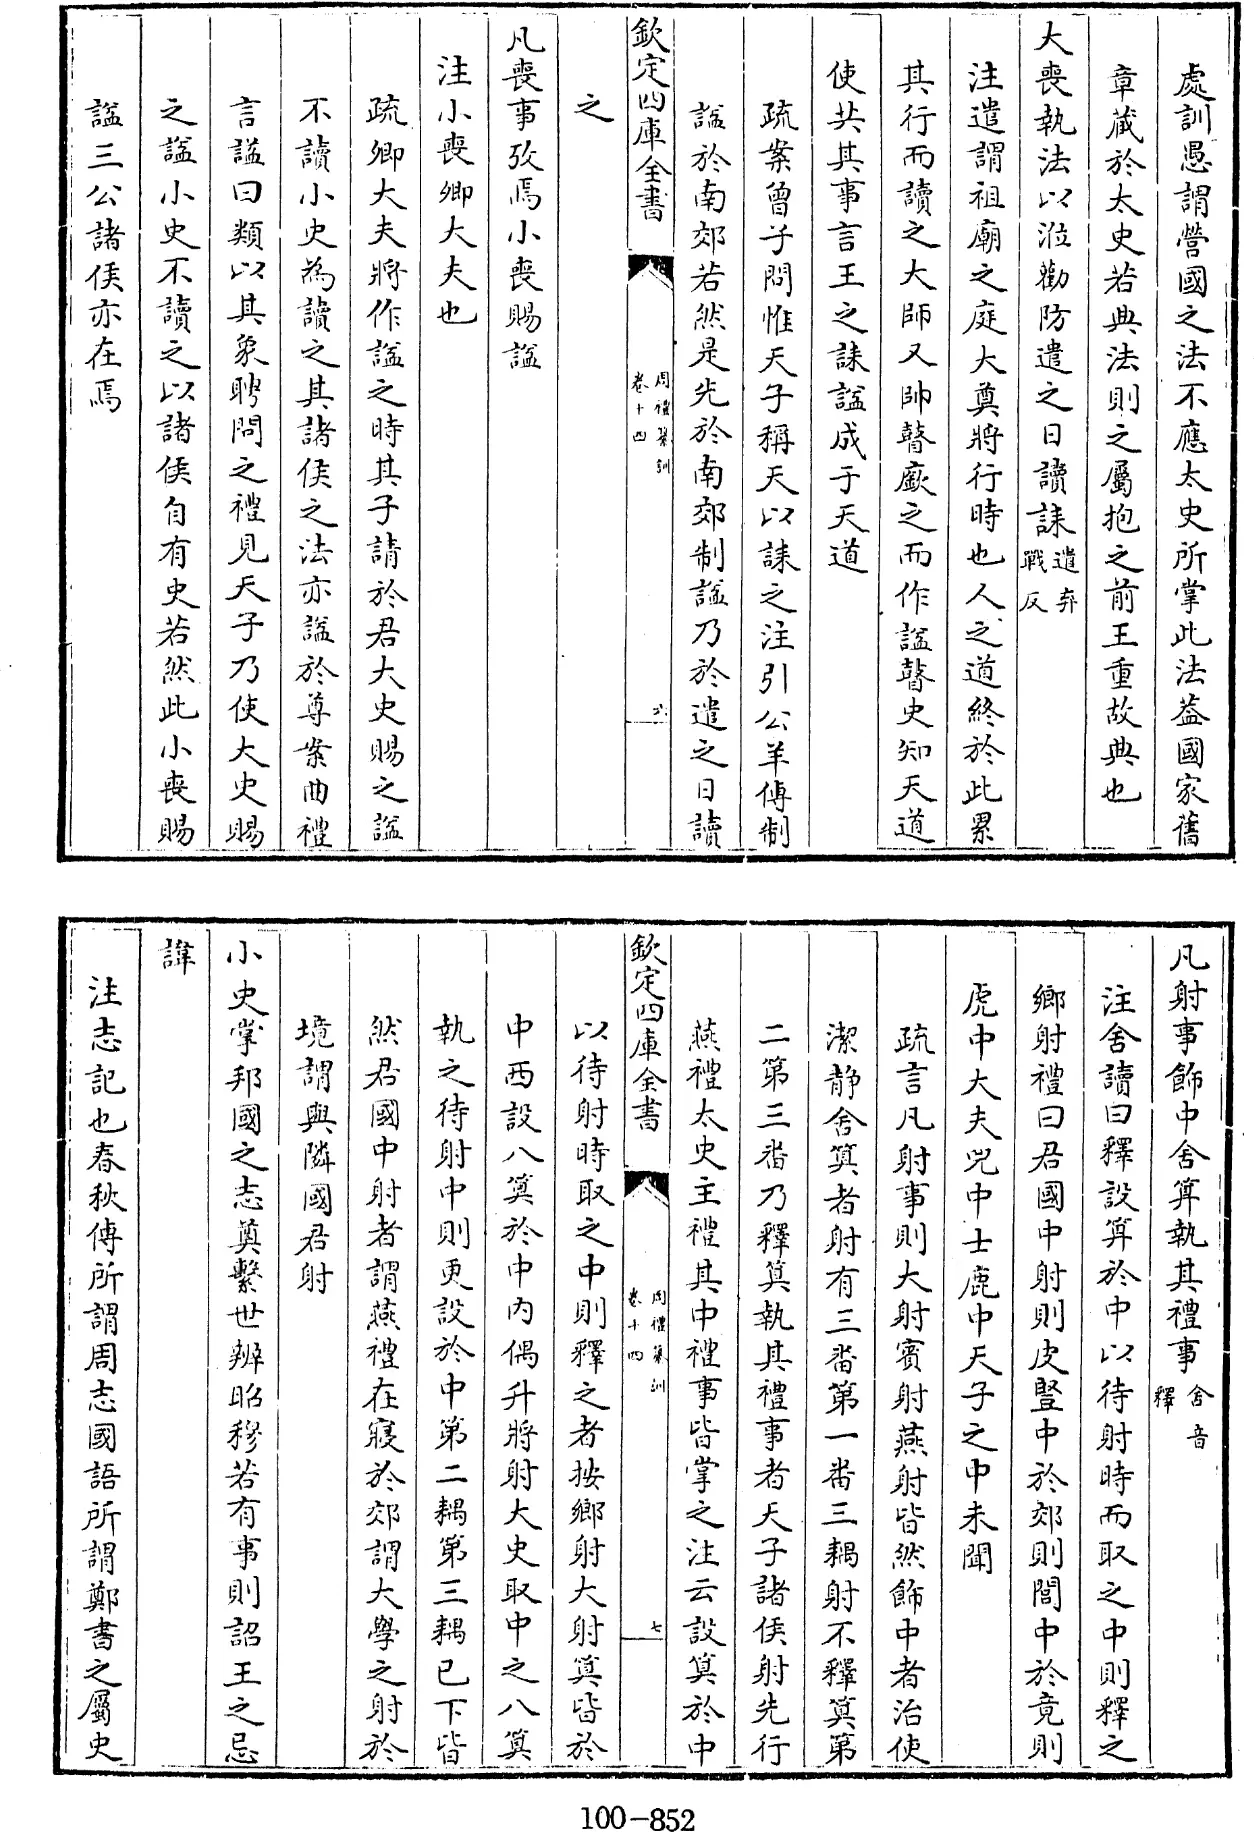 處訓愚謂營國之法不應太史所掌此法葢國家舊
章蔵於太史若典法則之屬抱之前王重故典也
大喪執法以涖勸防遣之日讀誄遣弃戰反
注遣謂祖廟之庭大奠將行時也人之道終於此累
其行而讀之大師又帥瞽廞之而作諡瞽史知天道
使共其事言王之誄諡成于天道
疏案曾子問惟天子稱天以誄之注引公羊傳制
諡於南郊若然是先於南郊制諡乃於遣之日讀
欽定四庫全書
周禮纂訓
卷十四
六
之
凡喪事攷焉小喪賜諡
注小喪卿大夫也
疏卿大夫將作諡之時其子請於君大史賜之諡
不讀小史為讀之其諸侯之法亦諡於尊案曲禮
言諡曰類以其象聘問之禮見天子乃使大史賜
之諡小史不讀之以諸侯自有史若然此小喪賜
諡三公諸侯亦在焉
凡射事飾中舍筭執其禮事舍音釋
注舍讀曰釋設筭於中以待射時而取之中則釋之
鄉射禮曰君國中射則皮豎中於郊則閭中於竟則
虎中大夫兕中士鹿中天子之中未聞
疏言凡射事則大射賓射燕射皆然飾中者治使
潔静舍筭者射有三番第一番三耦射不釋筭第
二第三番乃釋筭執其禮事者天子諸侯射先行
燕禮太史主禮其中禮事皆掌之注云設筭於中
欽定四庫全書
周禮纂訓
卷十四
七
以待射時取之中則釋之者按鄉射大射筭皆於
中西設八筭於中内偶升將射大史取中之八筭
執之待射中則更設於中第二耦第三耦已下皆
然君國中射者謂燕禮在寢於郊謂大學之射於
境謂與隣國君射
小史掌邦國之志奠繫世辨昭穆若有事則詔王之忌
諱
注志記也春秋傳所謂周志國語所謂鄭書之屬史
100-852